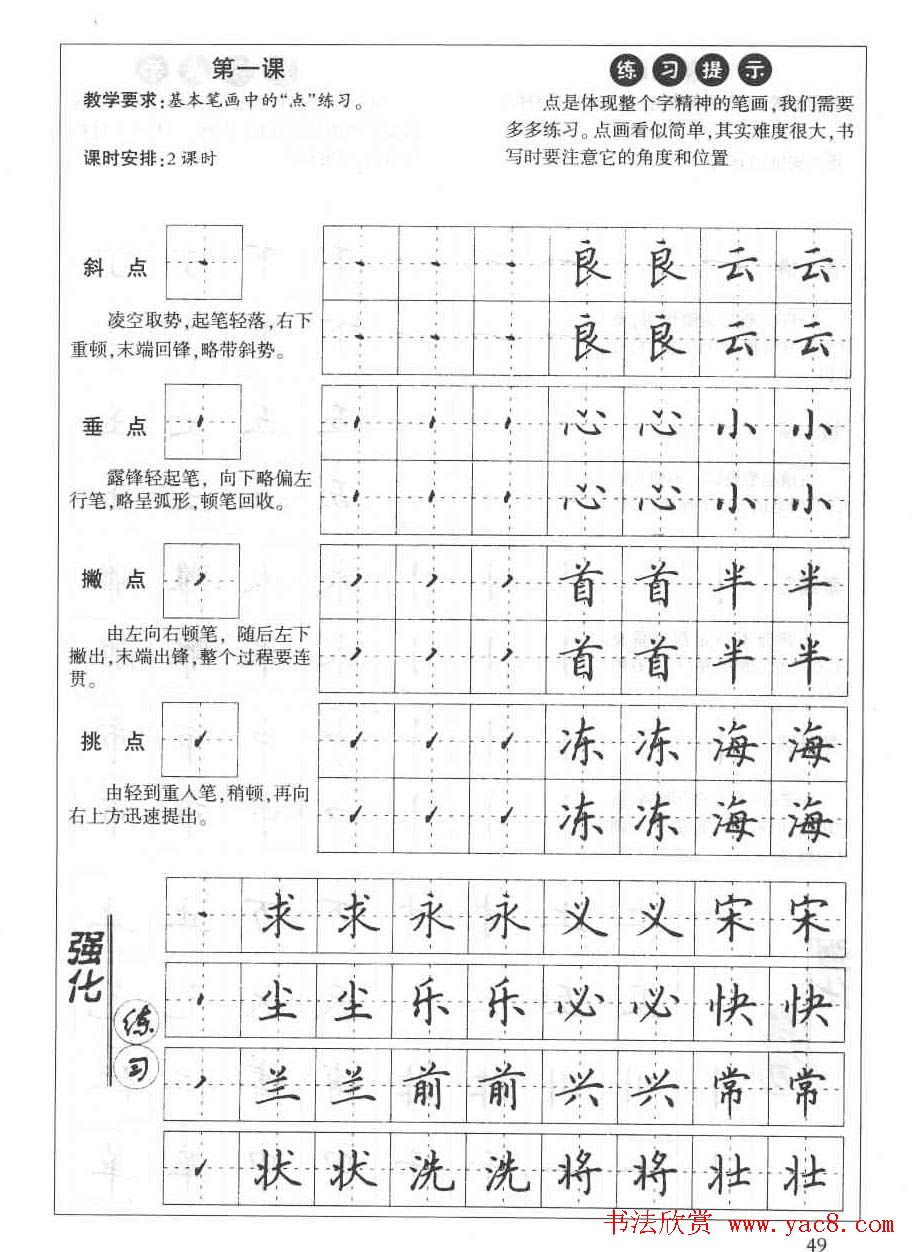 第一课
教学要求:基本笔画中的“点”练习。
课时安排:2课时
练习提示
点是体现整个字精神的笔画,我们需要
多多练习。点画看似简单,其实难度很大,书
写时要注意它的角度和位置
斜 点
良 良 云 云
凌空取势,起笔轻落,右下
重顿,末端回锋,略带斜势。
良 良 云 云
垂 点
心 心 小 小
露锋轻起笔,向下略偏左
行笔,略呈弧形,顿笔回收。
心 心 小 小
撇 点
首 首 半 半
由左向右顿笔,随后左下
撇出,末端出锋,整个过程要连
贯。
首 首 半 半
挑 点
冻 冻 海 海
由轻到重入笔,稍顿,再向
右上方迅速提出。
冻 冻 海 海
强化
练习
求 求 永 永 义 义 宋 宋
尘 尘 乐 乐 必 必 快 快
兰 兰 前 前 兴 兴 常 常
状 状 洗 洗 将 将 壮 壮
书法欣赏 www.yac8.com
49